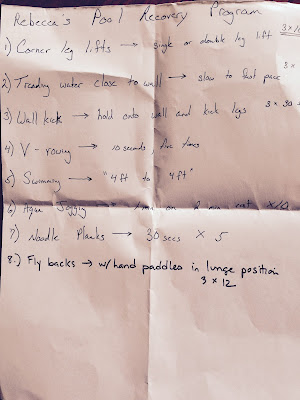 Rebecca's Pool Recovery Program
1) Corner leg lifts → single or double leg lift 3x10
2) Treading water close to wall → slow to fast pace 3x
3) Wall kick → hold onto wall and kick legs 3x30
4) V-rowing → 10 seconds five times
5) Swimming → "4ft to 4ft"
6) Aqua Jogging → on 2 min rest x10
7) Noodle Planks → 30 secs x 5
8.) Fly backs → w/ hand paddles in lunge position
3 x 12